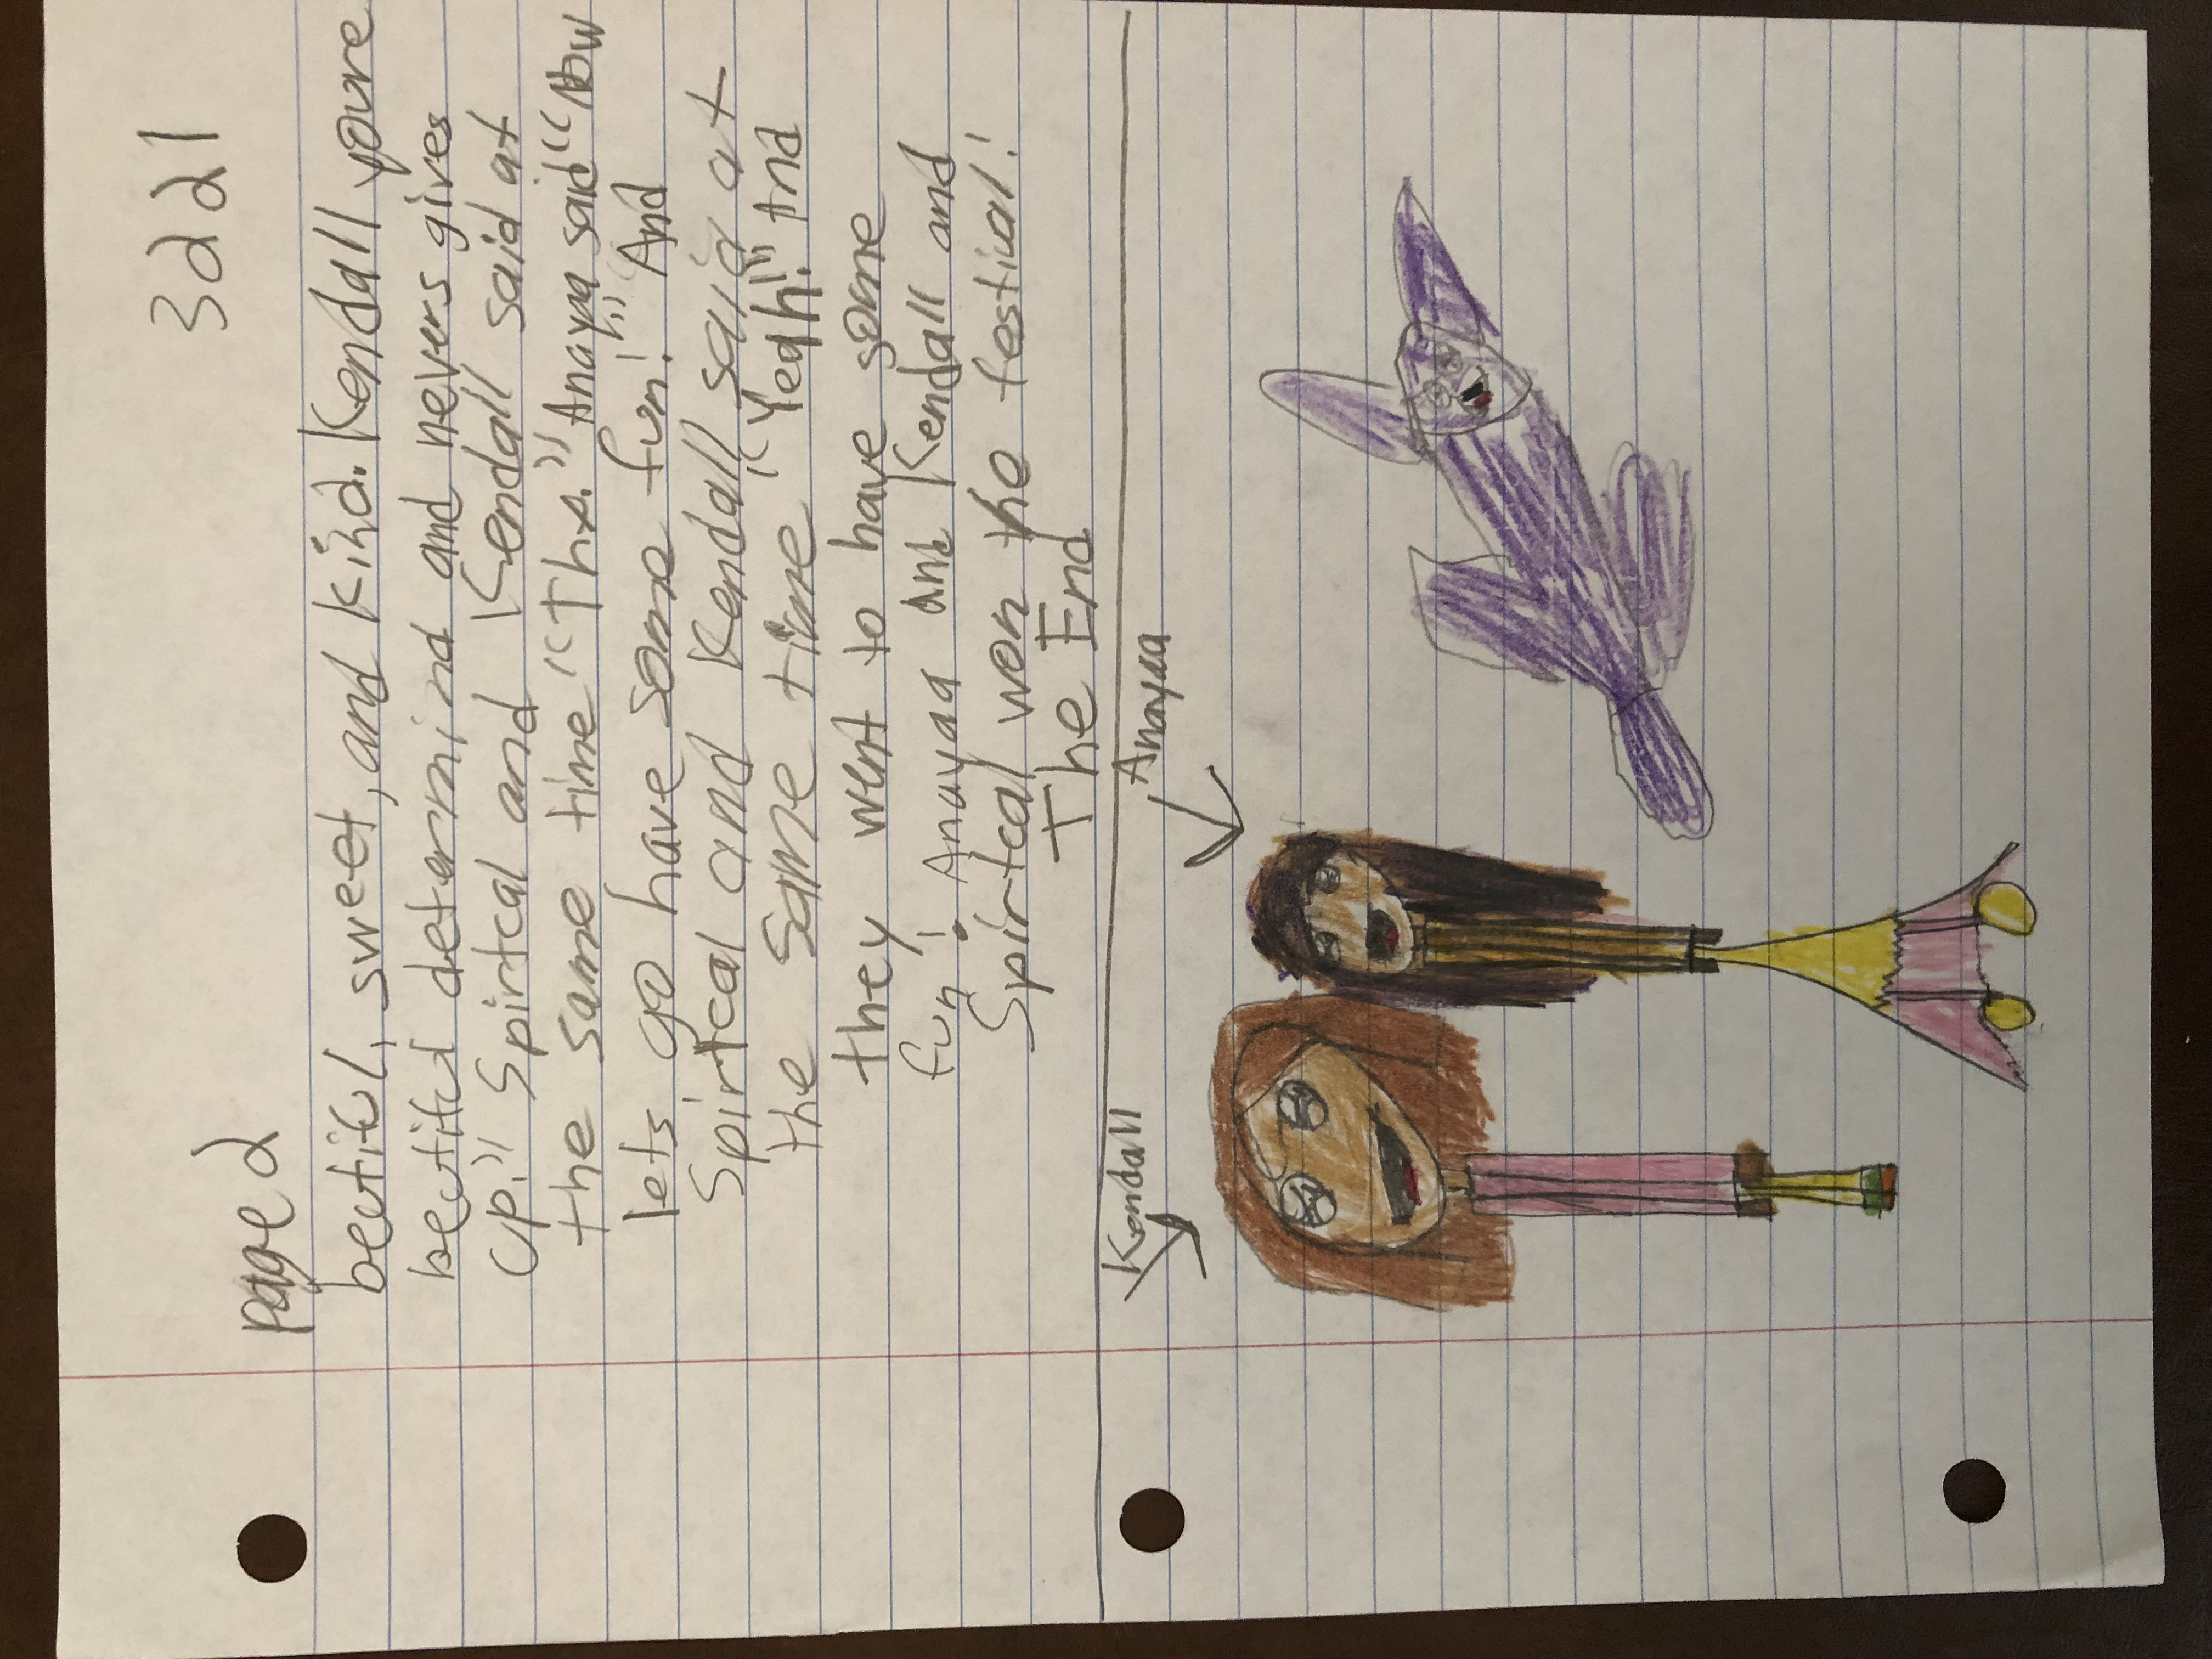 3221
page 2
beutiful, sweet, and kind. Kendall youre
beutiful determind and nevers gives
up." Spirtcal and Kendall said at
the same time "Thx." Anayaa said "Now
lets go have some fun!" And
Spirtcal and Kendall said at
the same time "Yeah!" And
they went to have some
fun! Anayaa and Kendall and
Spirtcal won the festival!
The End
Kendall
Anayaa